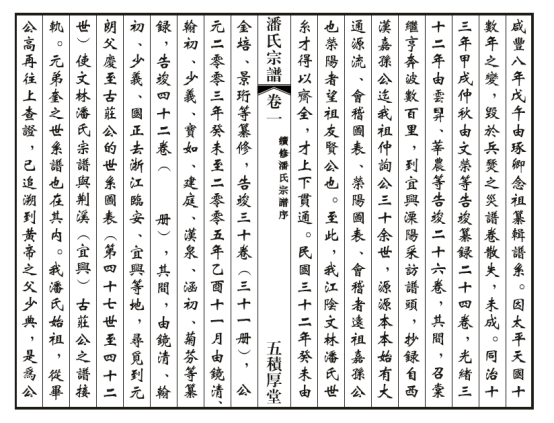 咸豐八年戊午由琢卿念祖纂輯譜系。因太平天國十
數年之變，毀於兵燹之災譜卷散失，未成。同治十
三年甲戌仲秋由文榮等告竣纂録二十四卷，光緒三
十二年由雲昇、華農等告竣二十六卷，其間，召棠
繼亨奔波數百里，到宜興溧陽采訪譜頭，抄録自西
漢嘉孫公迄我祖仲詢公三十余世，源源本本始有大
通源流、會稽圖表、榮陽圖表、會稽者遠祖嘉孫公
也榮陽者望祖友賢公也。至此，我江陰文林潘氏世
系才得以齊全，才上下貫通。民國三十二年癸未由
潘氏宗譜 卷一 續修潘氏宗譜序 五積厚堂
金培、景珩等纂修，告竣三十卷（三十一册），公
元二零零三年癸未至二零零五年乙酉十一月由鏡清、
翰初、少義、寶如、建庭、漢泉、涵初、菊芬等纂
録，告竣四十二卷（ 册），其間，由鏡清、翰
初、少義、國正去浙江臨安、宜興等地，尋覓到元
朗父慶至古莊公的世系圖表（第四十七世至四十二
世）使文林潘氏宗譜與荆溪（宜興）古莊公之譜接
軌。元弟奎之世系譜也在其内。我潘氏始祖，從畢
公高再往上查證，已追溯到黄帝之父少典，是爲公